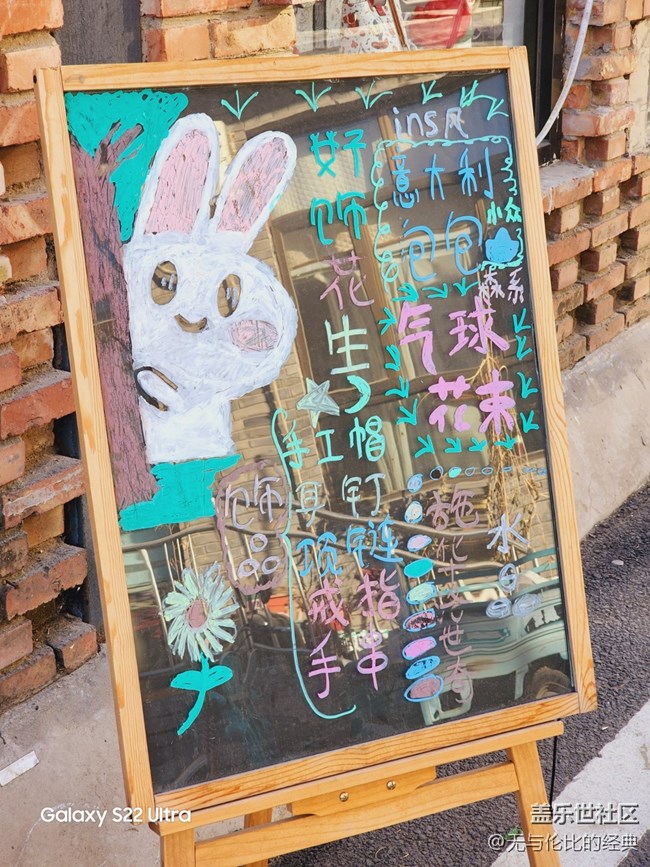 ins风
意大利
包包
小众
森系
气球
花束
好饰花生
手工帽
耳钉
项链
戒指
手串
饰品
施华洛世奇
水晶
Galaxy S22 Ultra
盖乐世社区
@无与伦比的经典